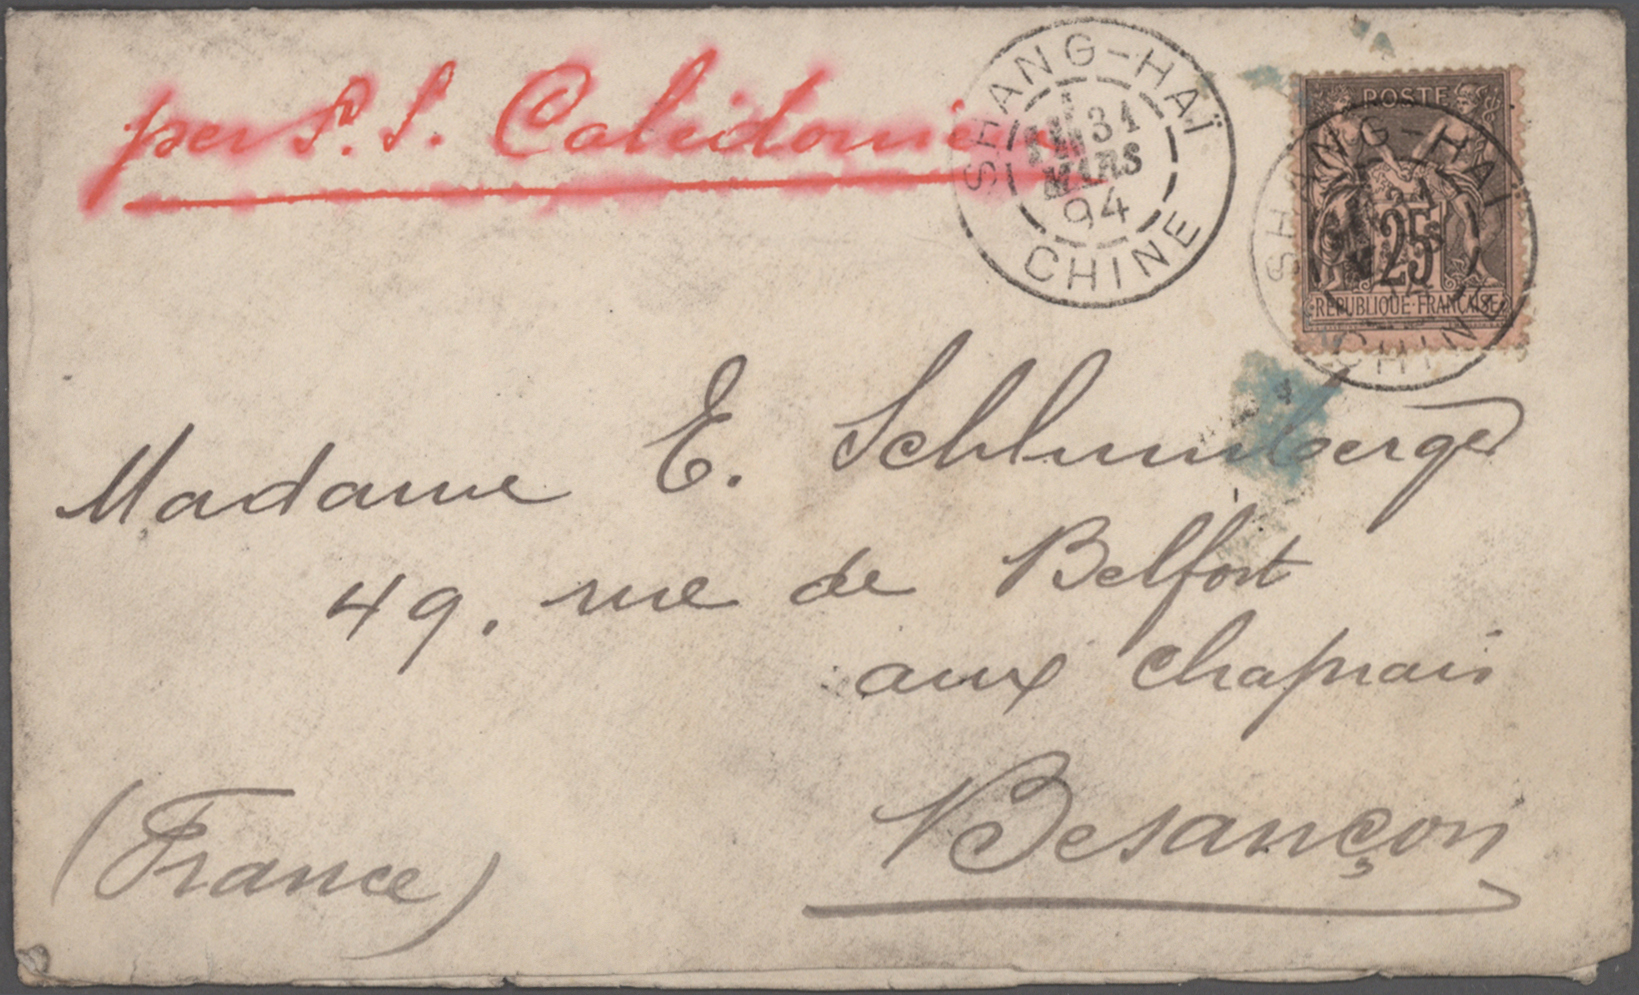 per S. S. Calédonien
SHANG-HAÏ
31
MARS
94
CHINE
POSTE
25
RÉPUBLIQUE FRANÇAISE
SHANG-HAÏ
CHINE
Madame E. Schlumberger
49, rue de Belfort
aux Chaprais
Besançon
(France)